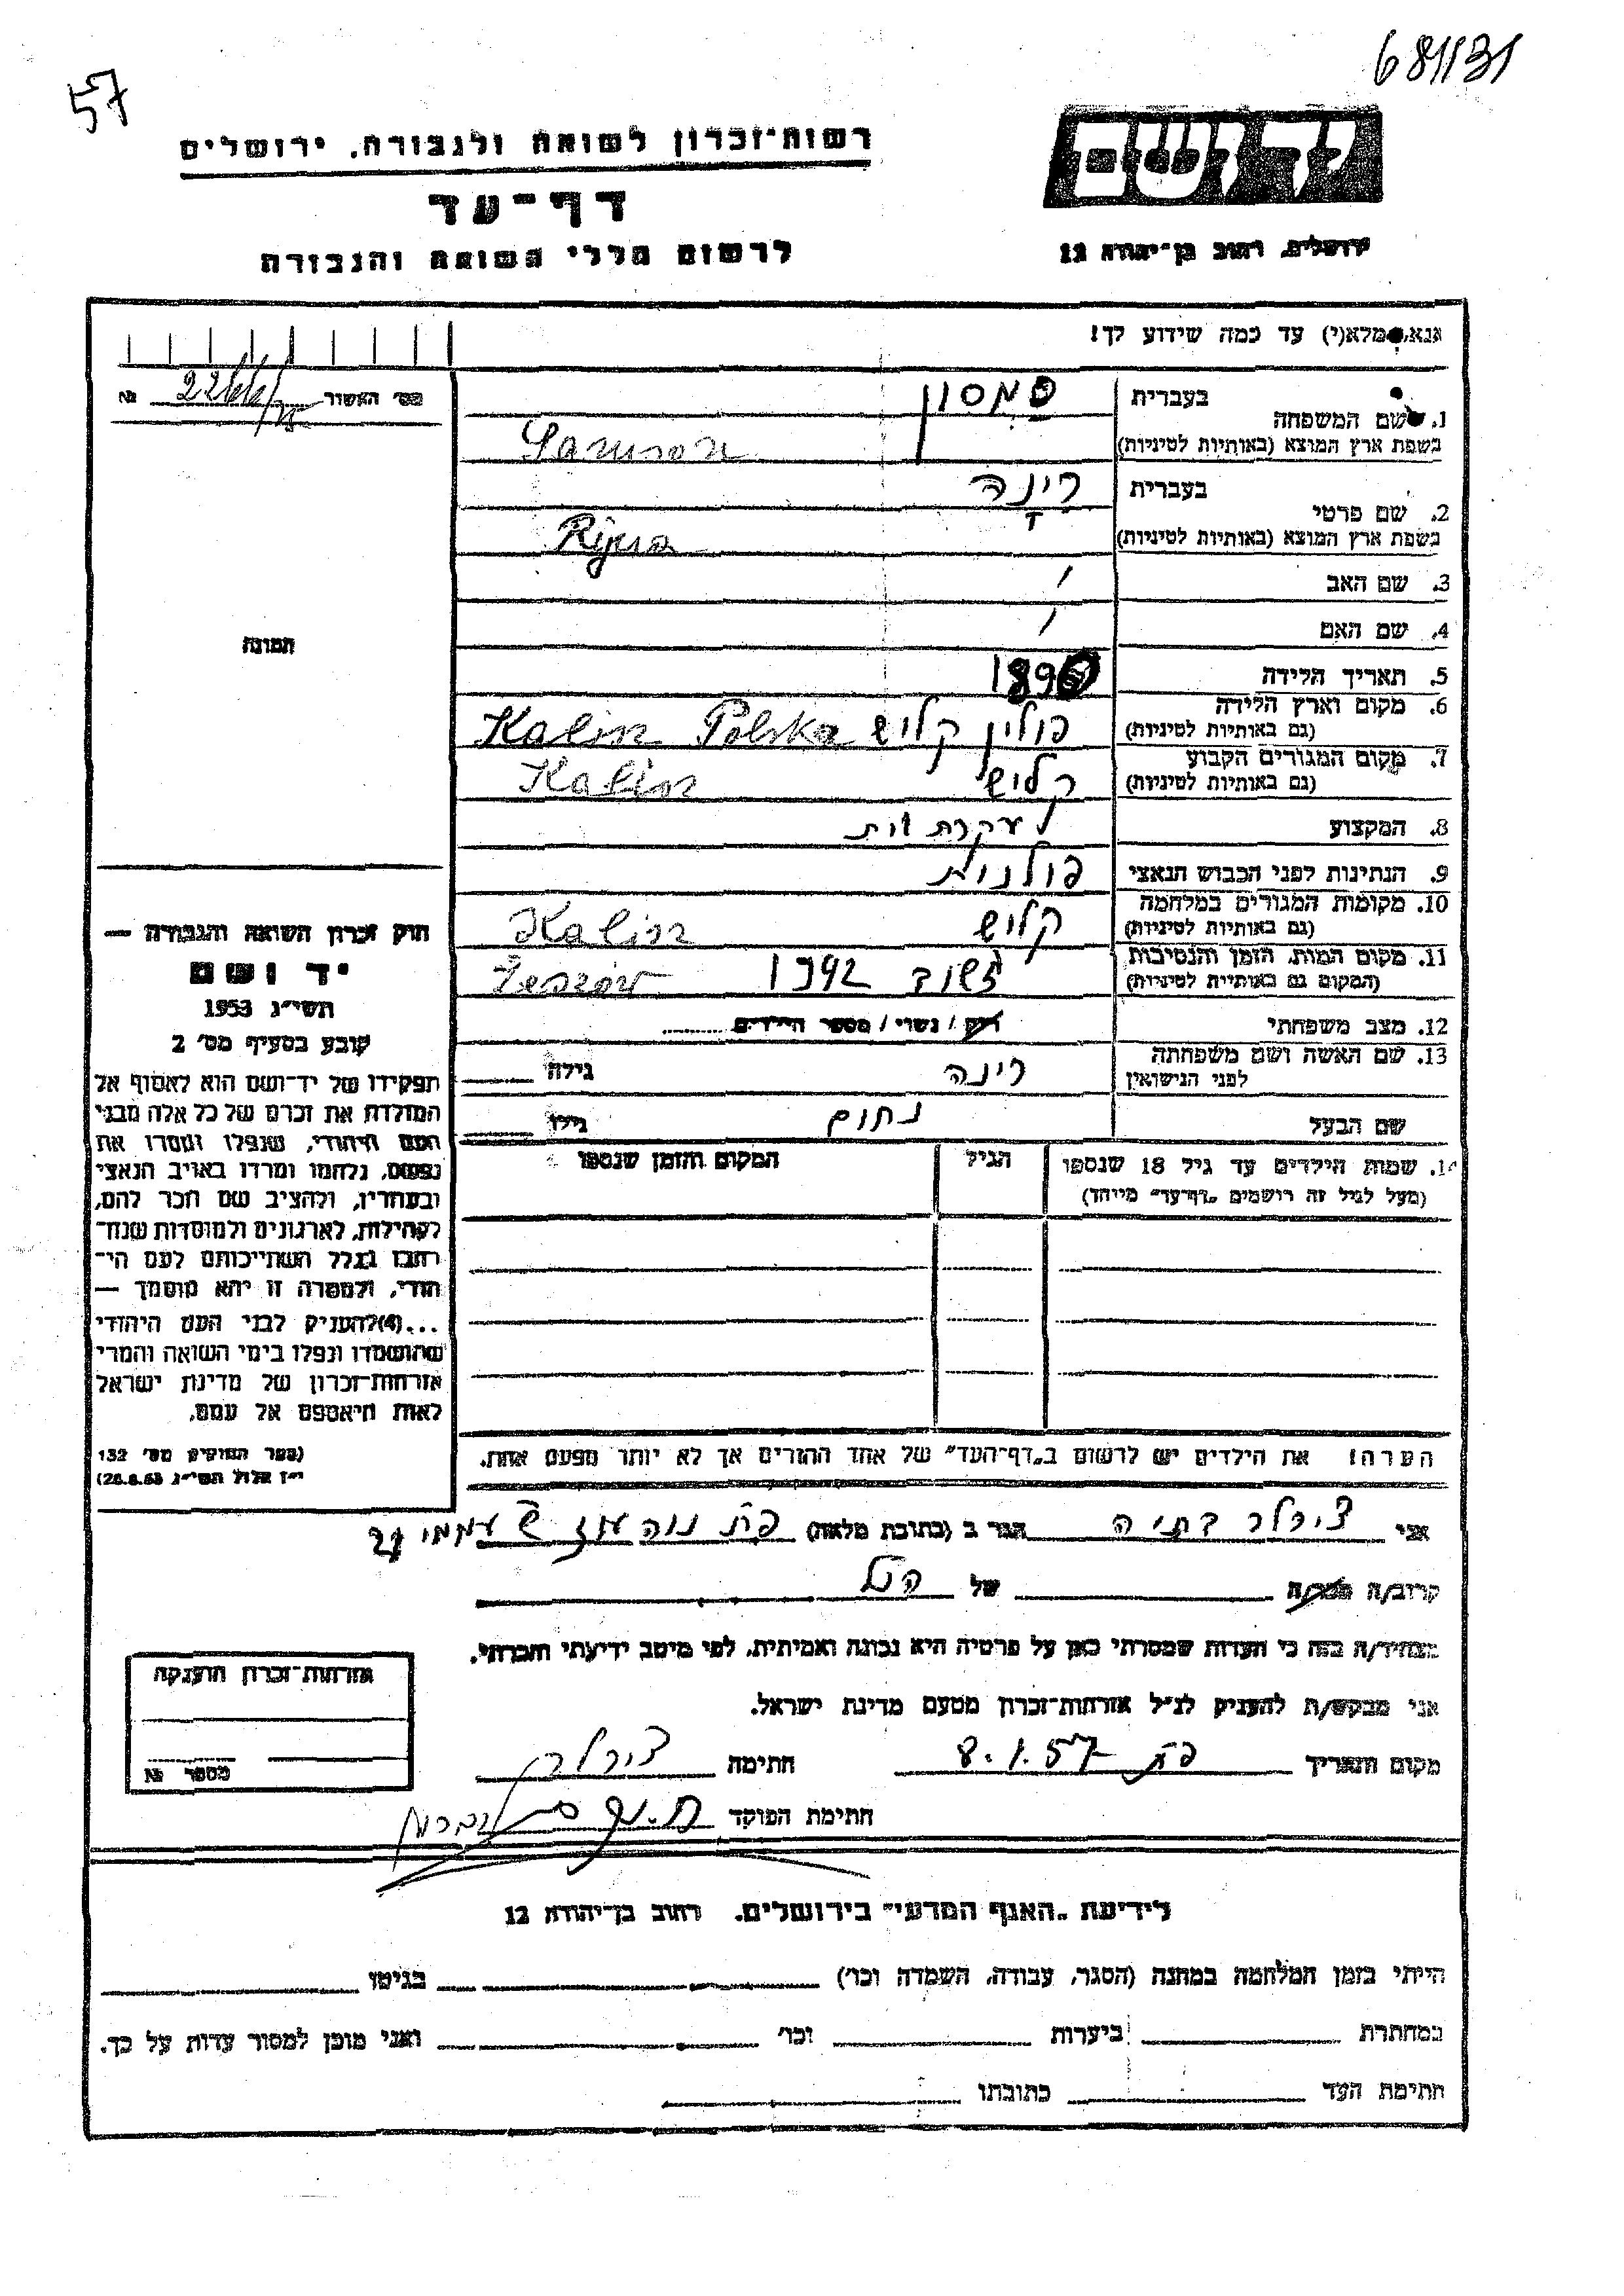 681131
57
יד ושם
ירושלים, רחוב בן־יהודה 12
רשות־זכרון לשואה ולגבורה, ירושלים
דף־עד
לרשום חללי השואה והגבורה
אנא, מלא(י) עד כמה שידוע לך!
מס׳ האשור №
1. שם המשפחה
בעברית סמסון
בשפת ארץ המוצא (באותיות לטיניות) Samson
2. שם פרטי
בעברית רינה
בשפת ארץ המוצא (באותיות לטיניות)
3. שם האב /
4. שם האם /
5. תאריך הלידה
6. מקום וארץ הלידה (גם באותיות לטיניות) פולין קליש Kalisz Polska
7. מקום המגורים הקבוע (גם באותיות לטיניות) קליש Kalisz
8. המקצוע עקרת בית
9. הנתינות לפני הכבוש הנאצי פולנית
10. מקומות המגורים במלחמה (גם באותיות לטיניות) קליש Kalisz
11. מקום המות, הזמן והנסיבות (המקום גם באותיות לטיניות) 1942
12. מצב משפחתי רווק / נשוי / מספר הילדים
13. שם האשה ושם משפחתה לפני הנישואין רינה גילה
שם הבעל נחום גילו
14. שמות הילדים עד גיל 18 שנספו
(מעל לגיל זה רושמים "דף־עד" מיוחד)
הגיל
המקום והזמן שנספו
הערה! את הילדים יש לרשום ב"דף־העד" של אחד ההורים אך לא יותר מפעם אחת.
התמונה
חוק זכרון השואה והגבורה —
יד ושם
תשי״ג 1953
קובע בסעיף מס׳ 2
תפקידו של יד־ושם הוא לאסוף אל
המולדת את זכרם של כל אלה מבני
העם היהודי, שנפלו ומסרו את
נפשם, נלחמו ומרדו באויב הנאצי
ובעוזריו, ולהציב שם וזכר להם,
לקהילות, לארגונים ולמוסדות שנח־
רבו בגלל השתייכותם לעם הי־
הודי, ולמטרה זו יהא מוסמך —
...(4) להעניק לבני העם היהודי
שהושמדו ונפלו בימי השואה והמרי
אזרחות־זכרון של מדינת ישראל
לאות היאספם אל עמם.
(ספר החוקים מס׳ 132
י״ז אלול תשי״ג 28.8.53)
אני בתיה הגר ב (כתובת מלאה)
קרוב/ה מכר/ה של הנ״ל
מצהיר/ה בזה כי העדות שמסרתי כאן על פרטיה היא נכונה ואמיתית, לפי מיטב ידיעתי והכרתי.
אני מבקש/ת להעניק לנ״ל אזרחות־זכרון מטעם מדינת ישראל.
מקום ותאריך פת 8.1.57 חתימה
חתימת הפוקד
אזרחות־זכרון הוענקה
מספר №
לידיעת "האגף המדעי" בירושלים, רחוב בן־יהודה 12
הייתי בזמן המלחמה במחנה (הסגר, עבודה, השמדה וכו׳) בגיטו
במחתרת ביערות וכו׳ ואני מוכן למסור עדות על כך.
חתימת העד כתובתו